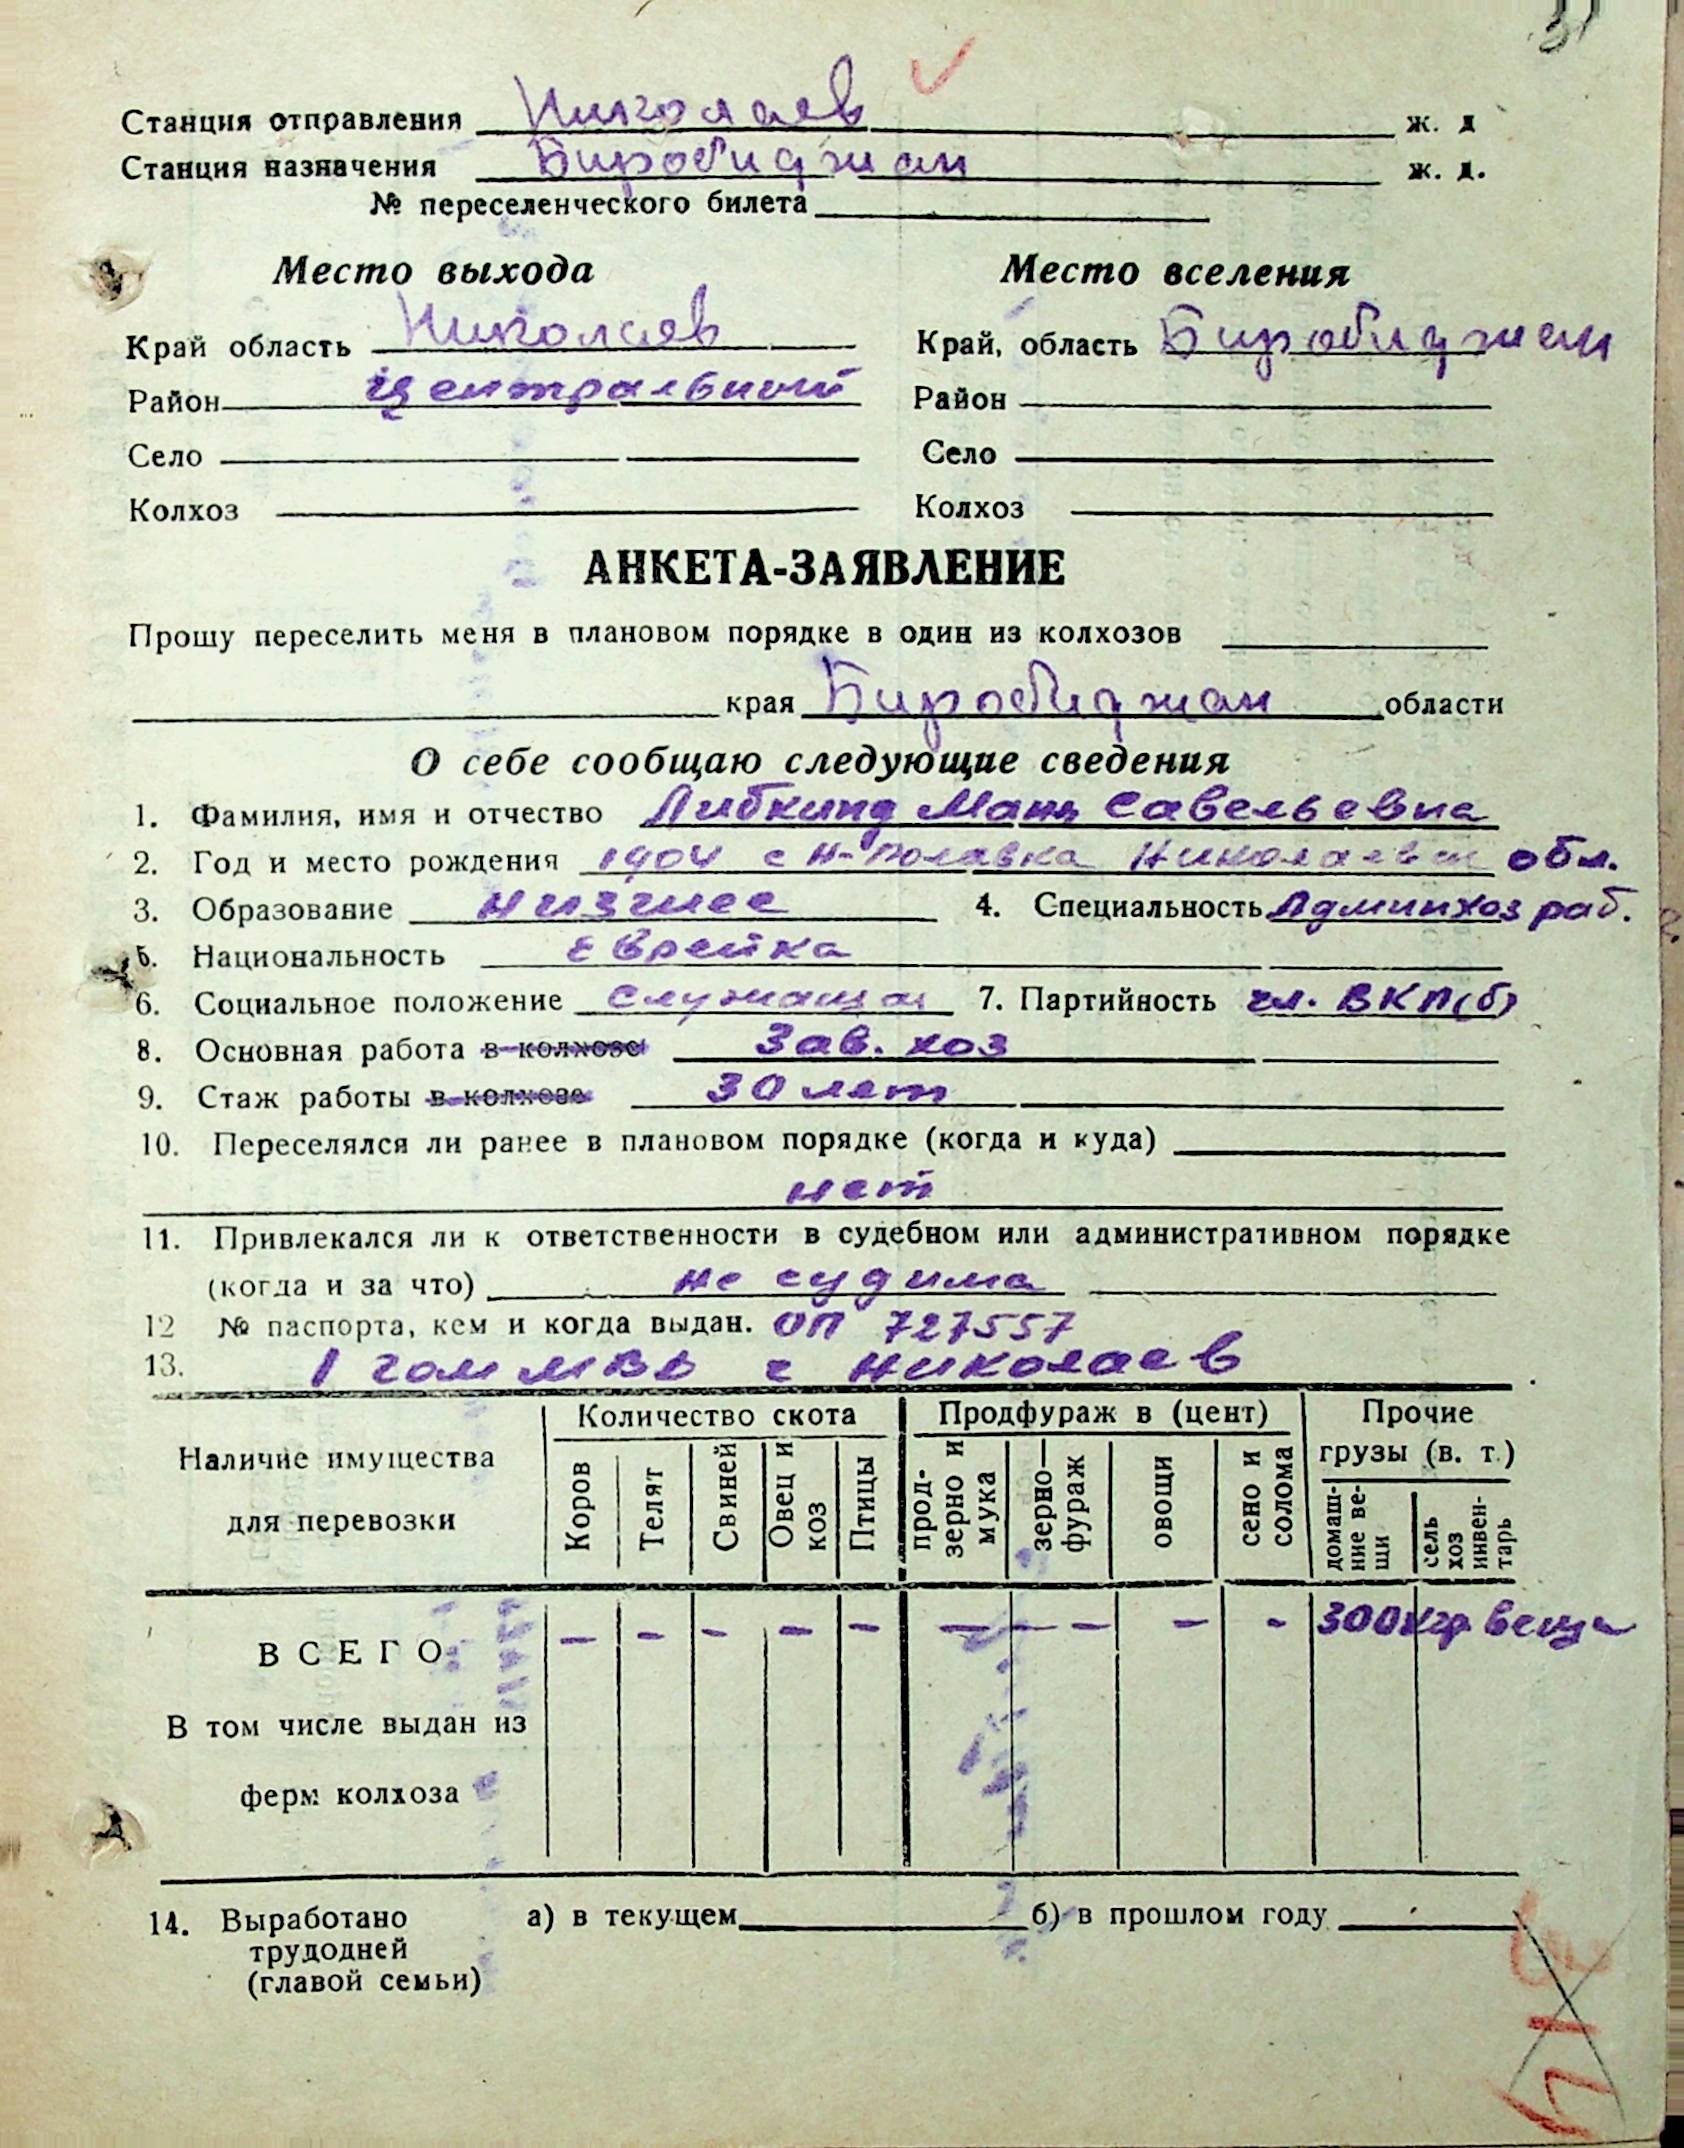 31
Станция отправления Николаев ж. д
Станция назначения Биробиджан ж. д.
№ переселенческого билета
Место выхода Место вселения
Край область Николаев Край, область Биробиджан
Район Центральный Район
Село Село
Колхоз Колхоз
АНКЕТА-ЗАЯВЛЕНИЕ
Прошу переселить меня в плановом порядке в один из колхозов
края Биробиджан области
О себе сообщаю следующие сведения
1. Фамилия, имя и отчество Либкинд Савельевна
2. Год и место рождения 1904 с Н-Полавка Николаевск обл.
3. Образование низшее 4. Специальность Админхоз раб.
5. Национальность еврейка
6. Социальное положение служащая 7. Партийность чл. ВКП(б)
8. Основная работа в колхозе Зав. хоз
9. Стаж работы в колхозе 30 лет
10. Переселялся ли ранее в плановом порядке (когда и куда)
нет
11. Привлекался ли к ответственности в судебном или административном порядке
(когда и за что) не судима
12 № паспорта, кем и когда выдан. ОП 727557
13. I гом МВД г Николаев
Наличие имущества для перевозки
Количество скота Продфураж в (цент) Прочие грузы (в. т.)
Коров Телят Свиней Овец и коз Птицы прод-зерно и мука зерно—фураж овощи сено и солома домаш-ние ве-щи сель хоз инвен-тарь
ВСЕГО – – – – – – – – – 300 кгр вещи
В том числе выдан из
ферм колхоза
14. Выработано а) в текущем б) в прошлом году
трудодней
(главой семьи)